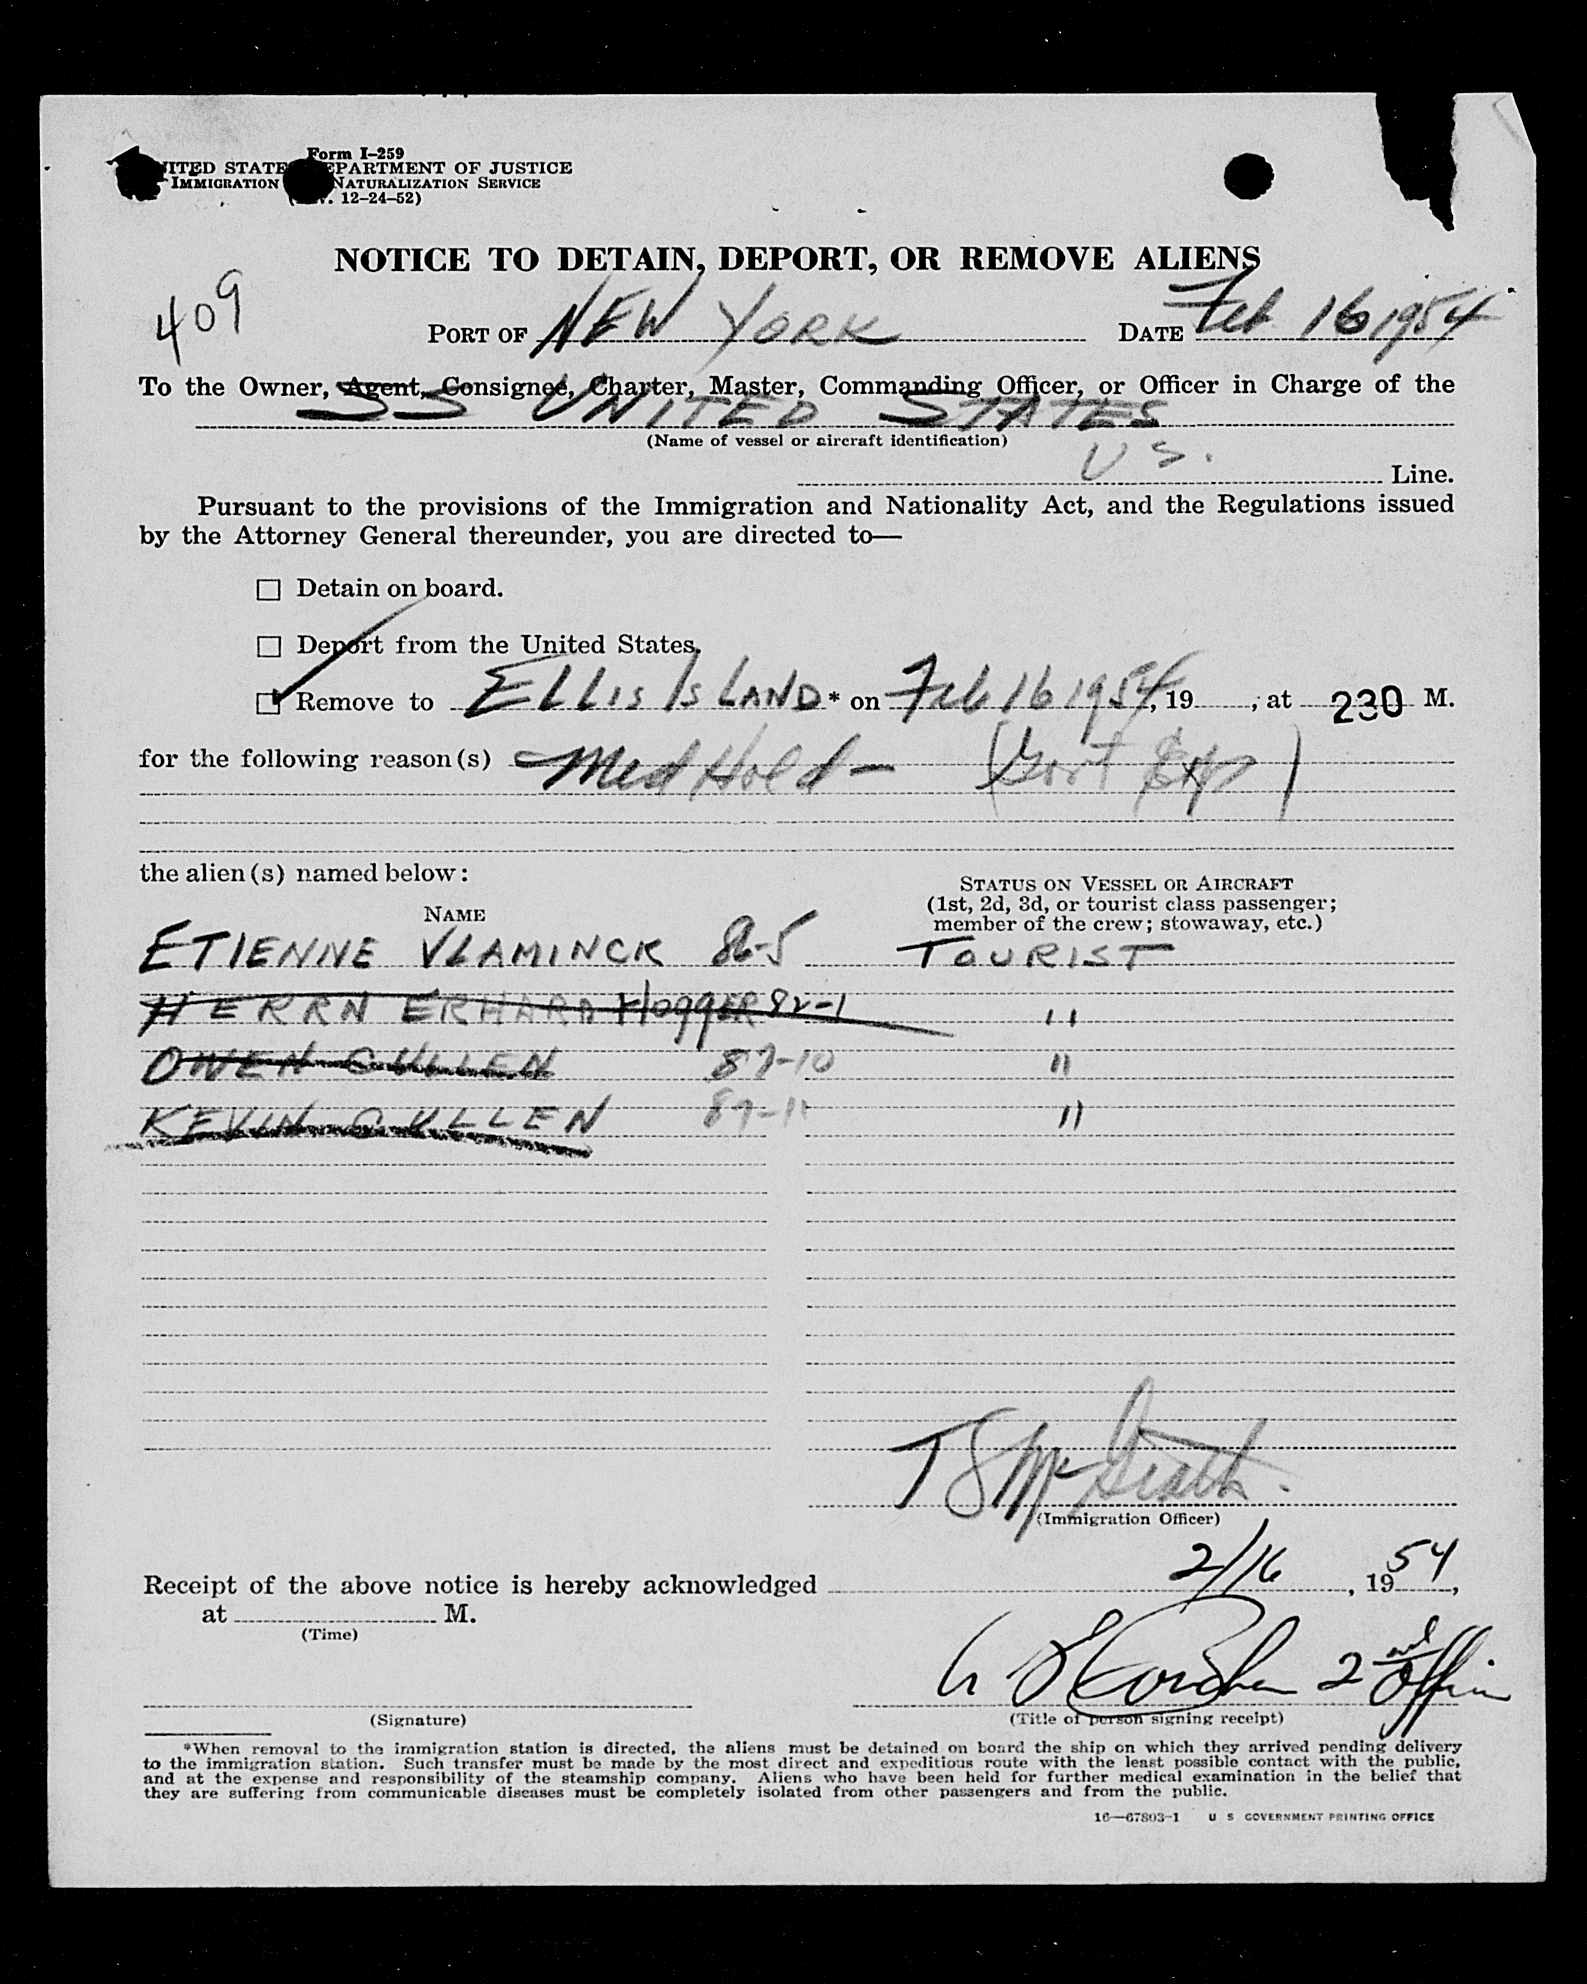 Form I-259
UNITED STATES DEPARTMENT OF JUSTICE
IMMIGRATION NATURALIZATION SERVICE
12-24-52)
NOTICE TO DETAIN, DEPORT, OR REMOVE ALIENS
409
PORT OF NEW YORK DATE Feb 16 1954
To the Owner, Agent, Consignee, Charter, Master, Commanding Officer, or Officer in Charge of the
SS UNITED STATES
(Name of vessel or aircraft identification)
US. Line.
Pursuant to the provisions of the Immigration and Nationality Act, and the Regulations issued
by the Attorney General thereunder, you are directed to—
☐ Detain on board.
☐ Deport from the United States.
☑ Remove to ELLIS ISLAND* on Feb 16 1954, 19, at 230 M.
for the following reason(s) Med Hold - (Govt Exp)
the alien(s) named below:
NAME
STATUS ON VESSEL OR AIRCRAFT
(1st, 2d, 3d, or tourist class passenger;
member of the crew; stowaway, etc.)
ETIENNE VLAMINCK 86-5 TOURIST
HERRN ERHARD HoggER 82-1 "
OWEN CULLEN 87-10 "
KEVIN CULLEN 87-11 "
T S McGrath.
(Immigration Officer)
Receipt of the above notice is hereby acknowledged 2/16, 1954,
at M.
(Time)
2nd Officer
(Signature)
(Title of person signing receipt)
*When removal to the immigration station is directed, the aliens must be detained on board the ship on which they arrived pending delivery
to the immigration station. Such transfer must be made by the most direct and expeditious route with the least possible contact with the public,
and at the expense and responsibility of the steamship company. Aliens who have been held for further medical examination in the belief that
they are suffering from communicable diseases must be completely isolated from other passengers and from the public.
16—67803-1 U S GOVERNMENT PRINTING OFFICE